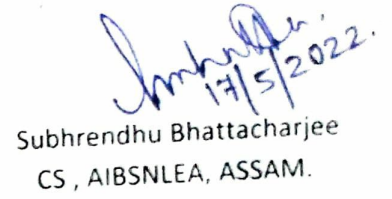 17/5/2022.
Subhrendhu Bhattacharjee
CS , AIBSNLEA, ASSAM.